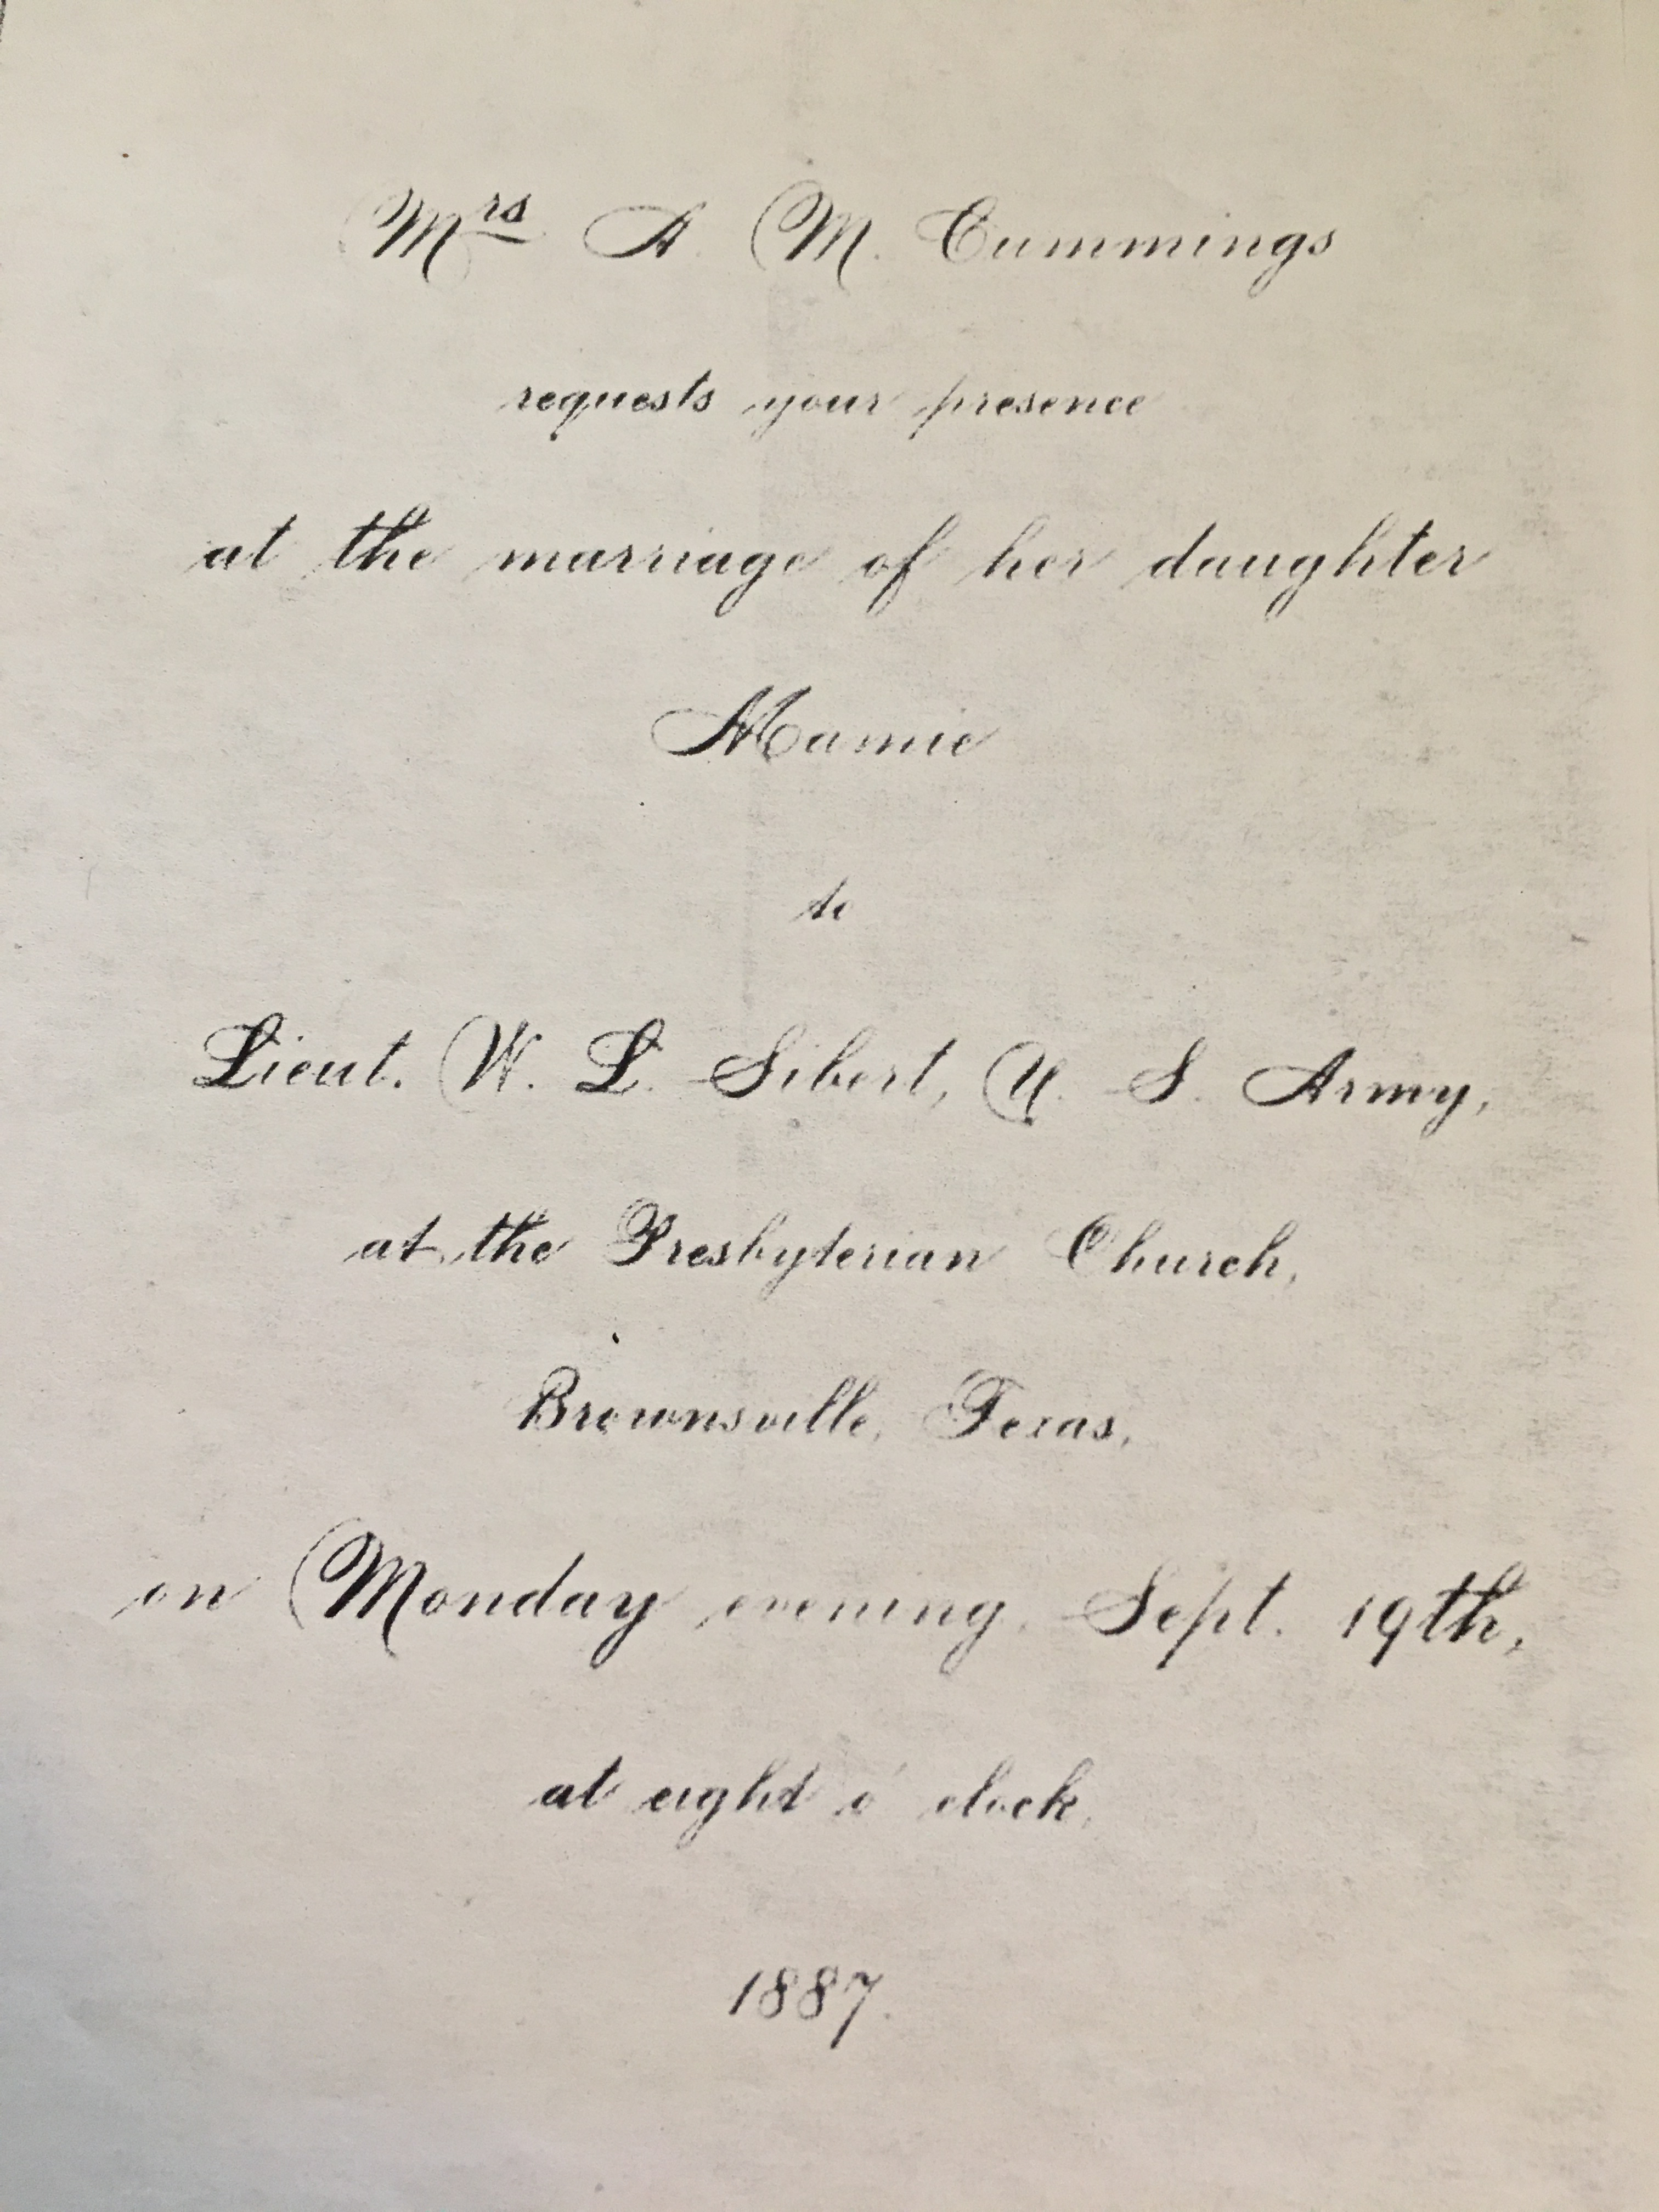 Mrs A. M. Cummings
requests your presence
at the marriage of her daughter
Mamie
to
Lieut. W. L. Sibert, U. S. Army,
at the Presbyterian Church,
Brownsville, Texas,
on Monday evening, Sept. 19th,
at eight o' clock.
1887.